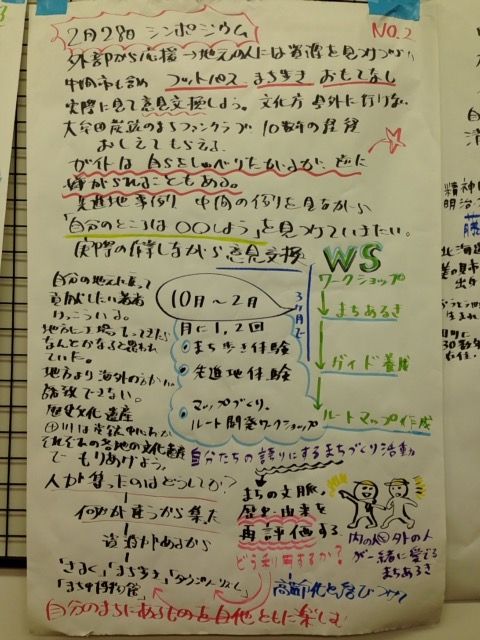 2月28日 シンポジウム
NO.2
外部から応援→地元の人には普通を見つけづらい
中間市も含め フットパス まち歩き おもてなし
実際に見て意見交換しよう。文化庁 県外に行けない
大牟田炭鉱のまちファンクラブ 10数年の経緯
おしえてもらえる
ガイドは自らをしゃべりたがるが、逆に
嫌がられることもある。
先進地事例 中間の例を見ながら
「自分のところは〇〇しよう」を見つけていきたい。
実際の作業しながら意見交換
WS
ワークショップ
まちあるき
ガイド養成
ルートマップ作成
10月～2月
月に1,2回
まち歩き体験
先進地体験
マップづくり。
ルート開発ワークショップ
自分の地元に戻って
貢献したい若者
けっこういる。
地方に工場つくってきたら
なんとかなると思われ
ていた。
地方より海外のほうが
誘致できない。
歴史文化遺産
田川は炭鉱中心だが
それぞれの各地の文化遺産
でもりあげよう。
自分たちの誇りにするまちづくり活動
人が集ったのはどうしてか?
何かが違うから集た
道があるから
「さるく」「まち歩き」「タウンツーリズム」
「まち中博物館」
まちの文脈、
歴史・由来を
再評価する
どう利用するか?
高齢化と結びつけ
内の人 外の人
が一緒に愛する
まちあるき
自分のまちにあるものを自他ともに楽しむ
精神
明治
北海道
出身